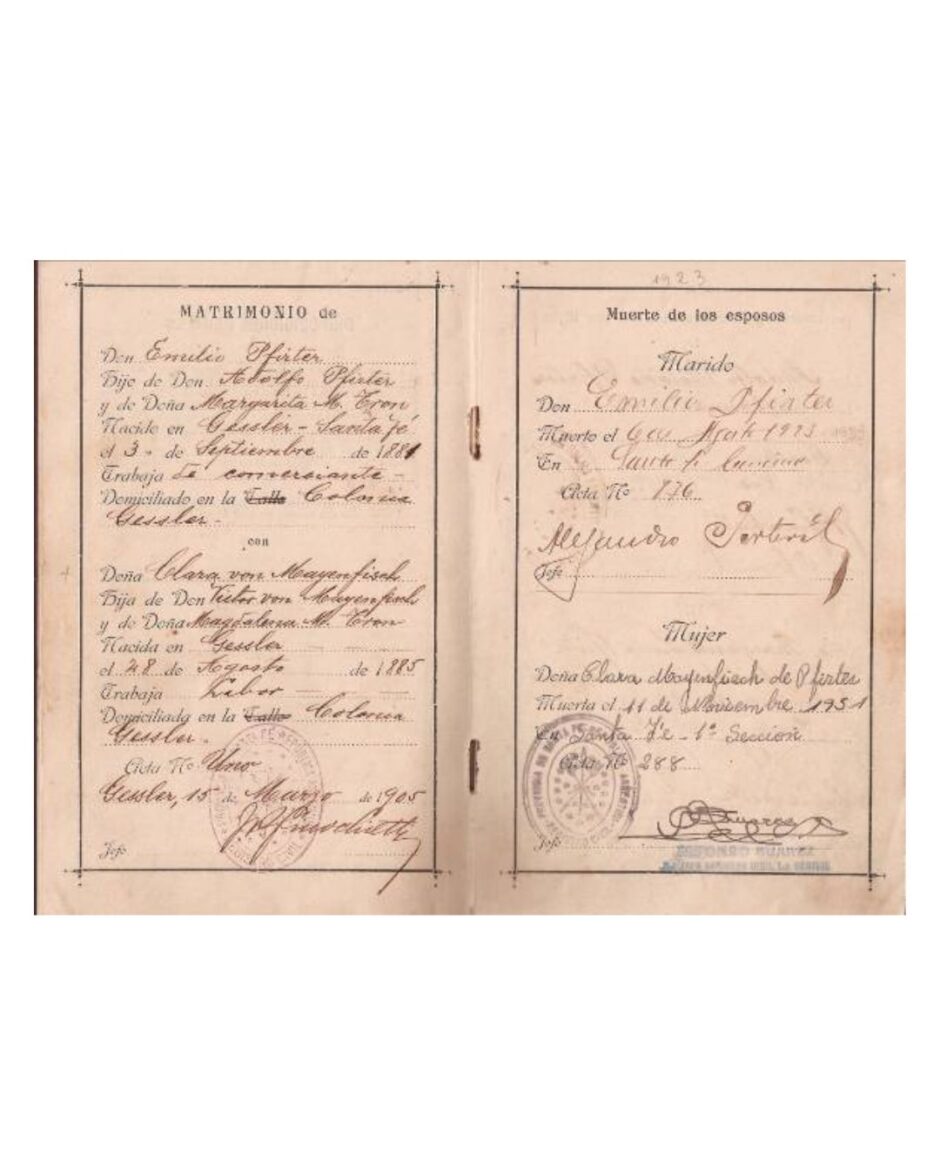 MATRIMONIO de
Don Emilio Pfirter
Hijo de Don Adolfo Pfirter
y de Doña Margarita M. Tron
Nacido en Gessler - Santa fé
el 3 de Septiembre de 1881
Trabaja de comersiante -
Domiciliado en la Calle Colonia
Gessler. -
con
Doña Clara von Mayenfisch
Hija de Don Victor von Mayenfisch
y de Doña Magdalena M. Tron
Nacida en Gessler
el 28 de Agosto de 1885
Trabaja Labor
Domiciliada en la Calle Colonia
Gessler. -
Acta No Uno
Gessler, 15 de Marzo de 1905
Jefe
1923
Muerte de los esposos
Marido
Don Emilio Pfirter
Muerto el 6 de Agosto 1923
En Santa fe
Acta No 176
Alejandro
Jefe
Mujer
Doña Clara Mayenfisch de Pfirter
Muerta el 11 de Noviembre 1951
En Santa Fe - 1ª Sección
Acta No 288
Jefe
SUAREZ